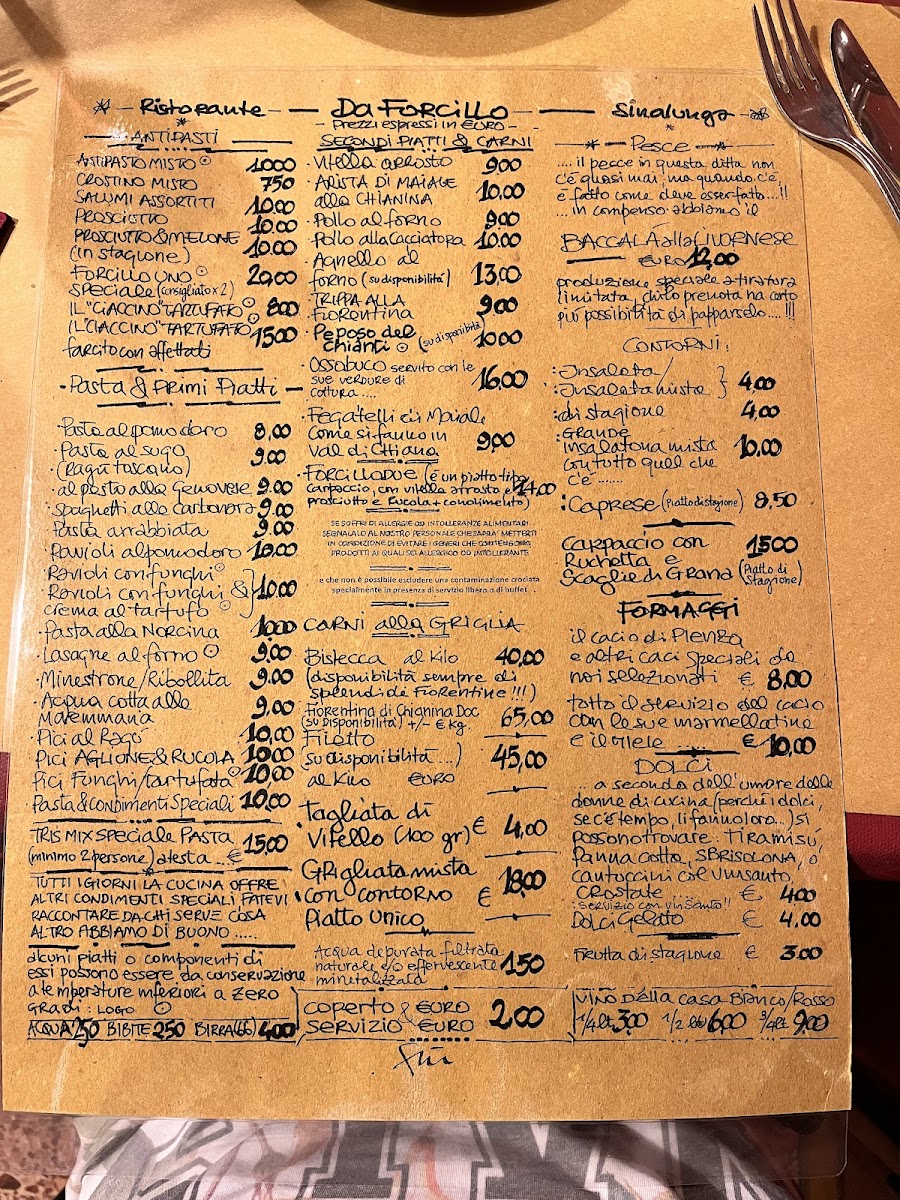 * - Ristorante - — Da Forcillo — - Sinalunga - *
- Prezzi espressi in EURO -
ANTIPASTI
ANTIPASTO MISTO 10.00
CROSTINO MISTO 7.50
SALUMI ASSORTITI 10.00
PROSCIUTTO 10.00
PROSCIUTTO & MELONE 10.00
(in stagione)
FORCILLO UNO 20,00
SPECIALE (consigliato x 2)
IL "CIACCINO" TARTUFATO 8.00
IL "CIACCINO" TARTUFATO 15.00
farcito con affettati
- Pasta & Primi Piatti -
Pasta al pomodoro 8,00
Pasta al sugo 9.00
(Ragù toscano)
al pesto alla Genovese 9.00
Spaghetti alla carbonara 9.00
Pasta arrabbiata 9.00
Ravioli al pomodoro 10.00
Ravioli con funghi
Ravioli con funghi & } 10.00
crema al tartufo
Pasta alla Norcina 10.00
Lasagne al forno 9.00
Minestrone/Ribollita 9.00
Acqua cotta alla 9.00
Maremmana
Pici al Ragù 10,00
Pici AGLIONE & RUCOLA 10.00
Pici Funghi/tartufata 10.00
Pasta & Condimenti Speciali 10,00
TRIS MIX SPECIALE PASTA 15,00
(minimo 2 persone) a testa ... €
TUTTI I GIORNI LA CUCINA OFFRE
ALTRI CONDIMENTI SPECIALI FATEVI
RACCONTARE DA CHI SERVE COSA
ALTRO ABBIAMO DI BUONO .....
alcuni piatti o componenti di
essi possono essere da conservazione
a temperature inferiori a zero
gradi: LOGO
ACQUA 2,50 BIBITE 2,50 BIRRA (66) 4,00
SECONDI PIATTI & CARNI
Vitella arrosto 9,00
ARISTA DI MAIALE 10,00
alla CHIANINA
Pollo al forno 9.00
Pollo alla Cacciatora 10.00
Agnello al
forno (su disponibilità) 13,00
TRIPPA ALLA 9,00
Fiorentina
Peposo del (su disponibilità)
Chianti 10.00
Ossobuco servito con le
sue verdure di 16,00
cottura ....
Fegatelli di Maiale
Come si fanno in 9,00
Val di Chiana
FORCILLO DUE (è un piatto tipo
carpaccio, con vitella arrosto e 14,00
prosciutto e Rucola + condimento)
SE SOFFRI DI ALLERGIE OD INTOLLERANZE ALIMENTARI
SEGNALALO AL NOSTRO PERSONALE CHE SAPRA' METTERTI
IN CONDIZIONE DI EVITARE I GENERI CHE CONTENGONO
PRODOTTI AI QUALI SEI ALLERGICO OD INTOLLERANTE
e che non è possibile escludere una contaminazione crociata
specialmente in presenza di servizio libero o di buffet .
CARNI alla GRIGLIA
Bistecca al kilo 40,00
(disponibilità sempre di
splendide Fiorentine !!!)
Fiorentina di Chianina Doc
(su disponibilità) +/- € Kg. 65,00
Filetto
su disponibilità ....) 45,00
al Kilo EURO
Tagliata di
Vitello (100 gr) € 4,00
Grigliata mista
con contorno € 18,00
Piatto Unico
Acqua depurata filtrata
naturale e/o effervescente 1,50
mineralizzata
COPERTO & EURO
SERVIZIO EURO 2,00
* - Pesce - *
.... il pesce in questa ditta non
c'è quasi mai, ma quando c'è,
è fatto come deve esser fatto...!!
... in compenso abbiamo il
BACCALÀ alla LIVORNESE
EURO 12,00
produzione speciale a tiratura
limitata, chi lo prenota ha certo
più possibilità di papparselo....!!!
CONTORNI:
Insalata /
Insalata mista } 4.00
di stagione 4,00
GRANDE
insalatona mista 10,00
con tutto quel che
c'è ......
Caprese (Piatto di stagione) 8,50
Carpaccio con 15.00
Ruchetta e
Scaglie di Grana (Piatto di stagione)
FORMAGGI
il cacio di Pienza
e altri caci speciali da
noi selezionati € 8,00
tutto il servizio del cacio
con le sue marmellatine
e il miele € 10,00
DOLCI
.. a seconda dell'umore delle
donne di cucina (perchè i dolci,
se c'è tempo, li fanno loro...) si
possono trovare: TIRAMISÙ,
Panna cotta, SBRISOLONA, o
cantuccini col Vinsanto,
CROSTATE € 4.00
:servizio con vin santo!!
Dolci Gelato € 4,00
Frutta di stagione € 3.00
VINO DELLA CASA Bianco/Rosso
1/4 lt 3,00 1/2 lt 6,00 3/4 lt 9,00